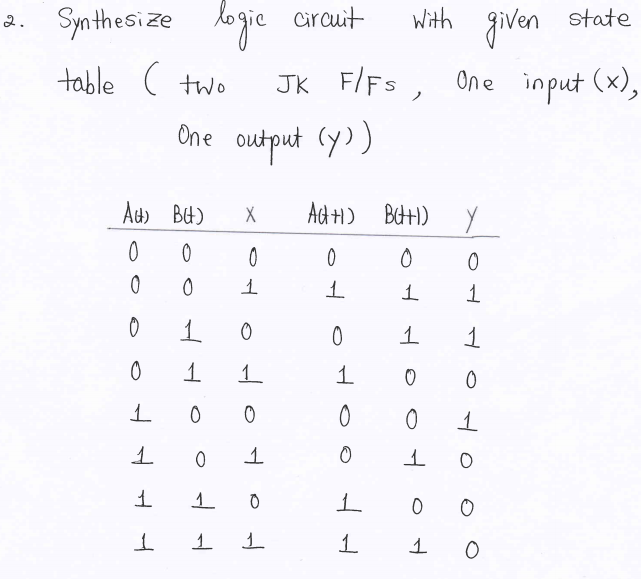 2. Synthesize logic circuit with given state
table ( two JK F/Fs, One input (x),
One output (y))
A(t) B(t) X A(t+1) B(t+1) y
0 0 0 0 0 0
0 0 1 1 1 1
0 1 0 0 1 1
0 1 1 1 0 0
1 0 0 0 0 1
1 0 1 0 1 0
1 1 0 1 0 0
1 1 1 1 1 0